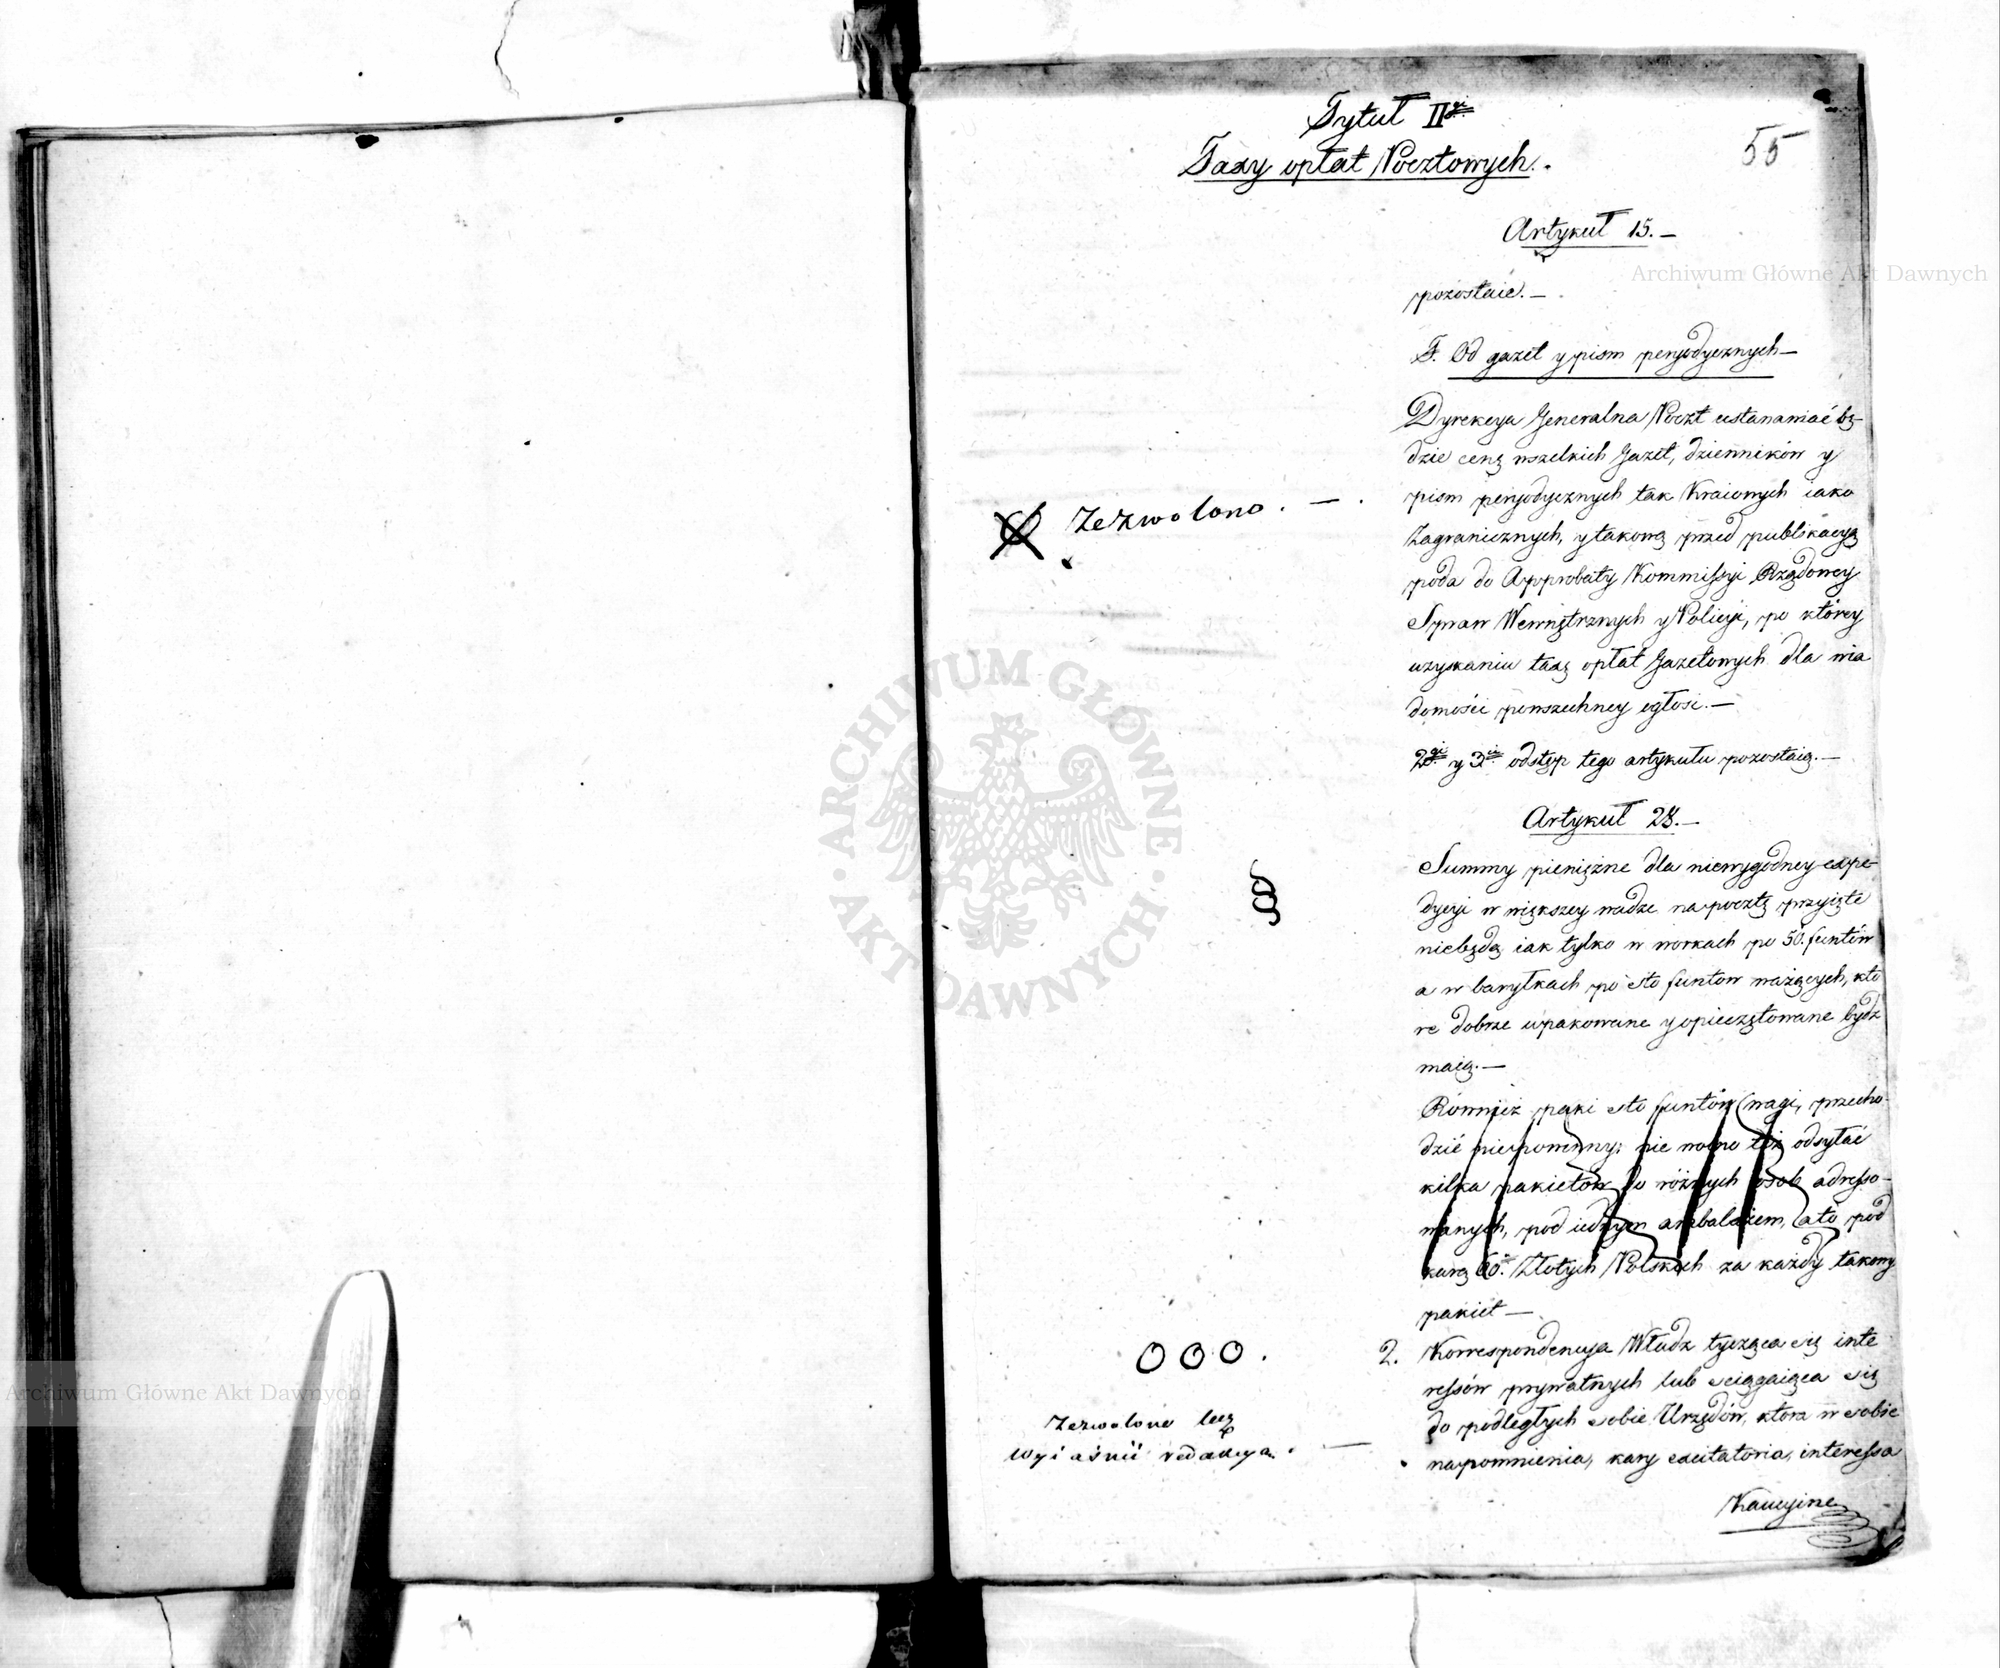 Tytuł II<sup>gi</sup>
Taxy opłat Pocztowych.
55
Artykuł 15.—
pozostaie.—
F. Od gazet y pism peryodycznych—
Dyrekcya Generalna Poczt ustanawiać bę-
dzie cenę wszelkich Gazet, dzienników y
pism peryodycznych tak Kraiowych iako
Zagranicznych, y takową przed publikacyą
poda do Approbaty Kommissyi Rządowey
Spraw Wewnętrznych y Policyi, po którey
uzyskaniu taxę opłat Gazetowych dla wia
domości powszechney ogłosi.—
Zezwolono. —.
2<sup>gi</sup> y 3<sup>ci</sup> odstęp tego artykułu pozostaią.—
Artykuł 28.—
§
Summy pieniężne dla niewygodney expe-
dycyi w większey wadze na pocztę przyięte
niebędą iak tylko w workach po 50. funtów
a w baryłkach po sto funtow ważących, kto
re dobrze upakowane y opieczętowane bydź
maią.—
Również paki sto funtów wagi, przecho-
dzić niepowinny; nie wolno też odsyłać
kilka pakietów do różnych osob adresso-
wanych, pod iednym ambalażem, a to pod
karą 60. Złotych Polskich za każdy takowy
pakiet—
OOO.
2. Korrespondencya Władz tycząca się inte
ressów prywatnych lub sciągaiąca się
do podległych sobie Urzędów, która w sobie
napomnienia, kary excitatoria, interessa
Zezwolono lecz
wyiaśnić redakcya. —
Kaucyine
Archiwum Główne Akt Dawnych
Archiwum Główne Akt Dawnych
ARCHIWUM GŁÓWNE · AKT DAWNYCH ·